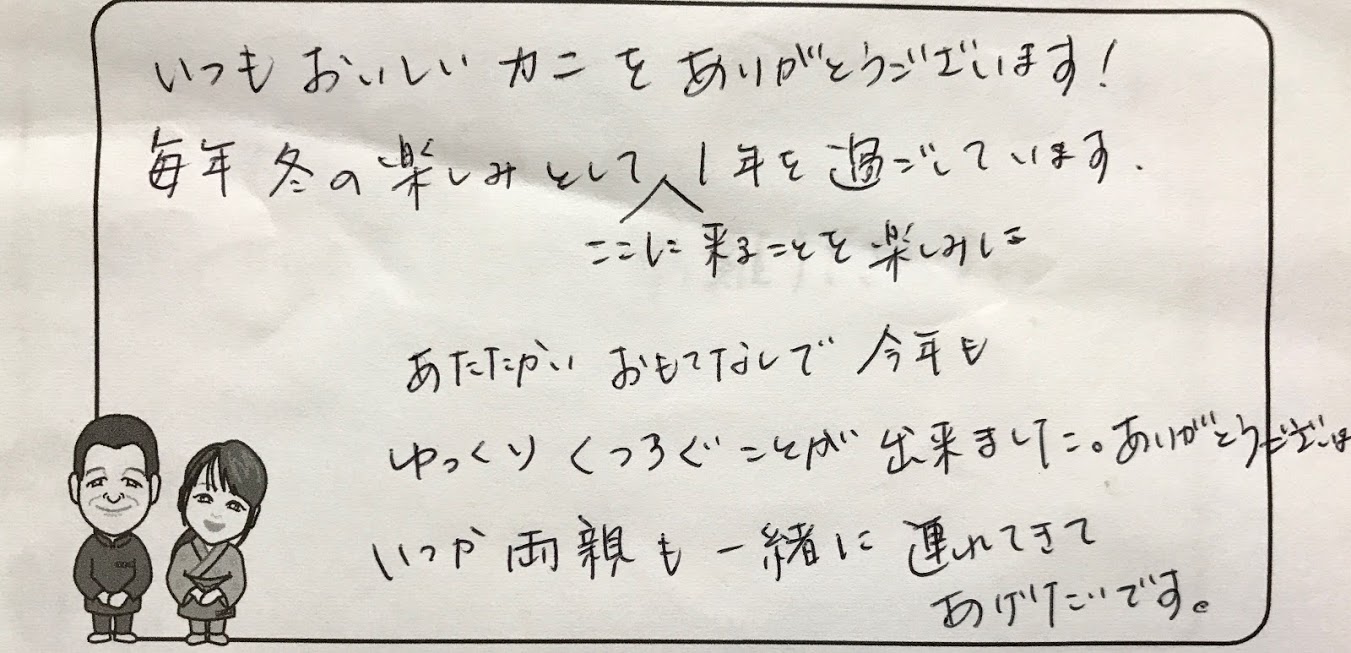 いつもおいしいカニをありがとうございます！
毎年冬の楽しみとして1年を過ごしています.
ここに来ることを楽しみに
あたたかいおもてなしで今年も
ゆっくりくつろぐことが出来ました。ありがとうございま
いつか両親も一緒に連れてきて
あげたいです。